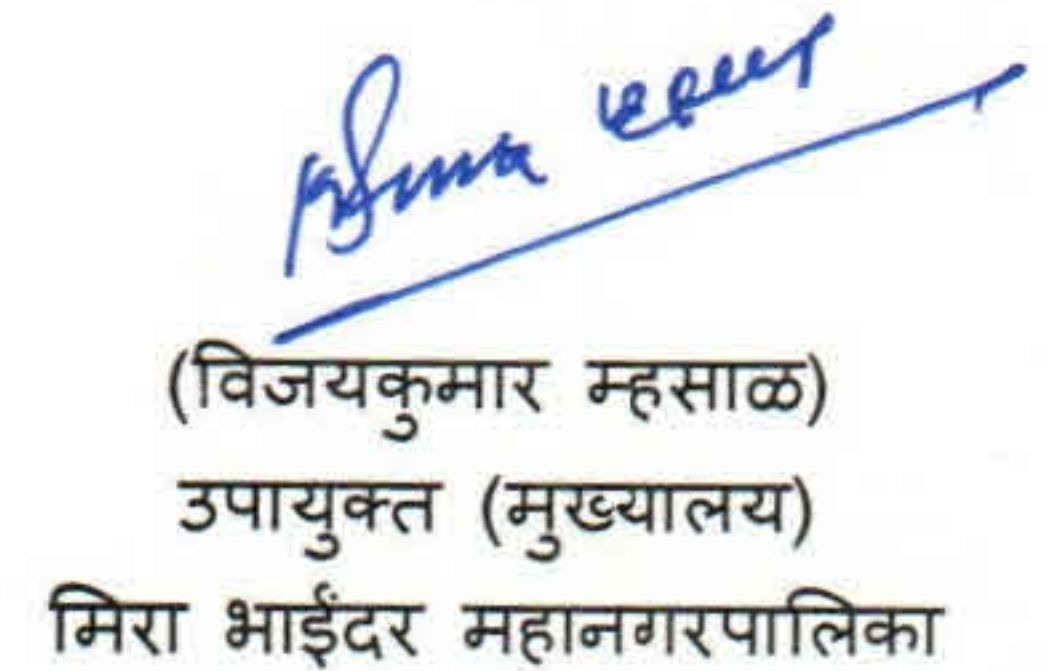 (विजयकुमार म्हसाळ)
उपायुक्त (मुख्यालय)
मिरा भाईंदर महानगरपालिका